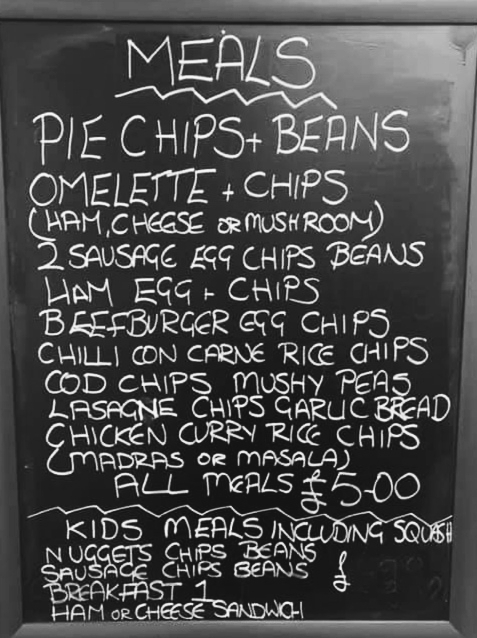 MEALS
PIE CHIPS + BEANS
OMELETTE + CHIPS
(HAM, CHEESE OR MUSHROOM)
2 SAUSAGE EGG CHIPS BEANS
HAM EGG + CHIPS
BEEFBURGER EGG CHIPS
CHILLI CON CARNE RICE CHIPS
COD CHIPS MUSHY PEAS
LASAGNE CHIPS GARLIC BREAD
CHICKEN CURRY RICE CHIPS
(MADRAS OR MASALA)
ALL MEALS £5-00
KIDS MEALS INCLUDING SQUASH
NUGGETS CHIPS BEANS
SAUSAGE CHIPS BEANS £
BREAKFAST 1
HAM OR CHEESE SANDWICH